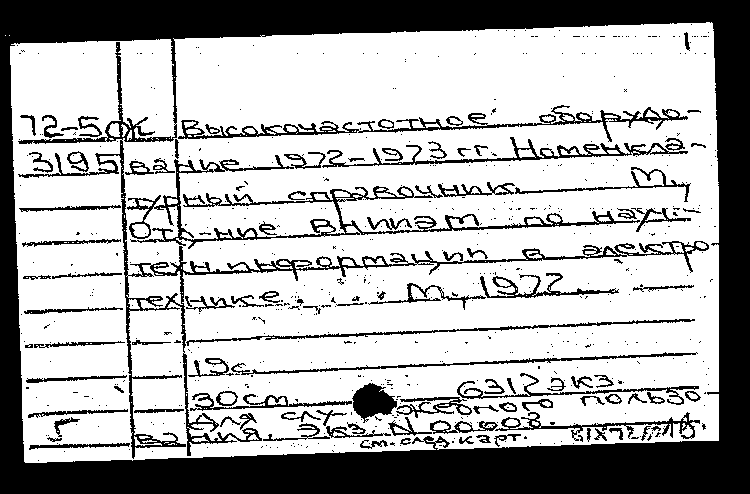 1
72-5ОЖ Высокочастотное оборудо-
3195 вание 1972-1973 гг. Номенкла-
турный справочник. М.,
Отд-ние ВНИИЭМ по науч.-
техн. информации в электро-
технике. М., 1972.
19с.
30см. 6312 экз.
Для служебного пользо
5 вания. Экз. N 00608.
см. след. карт.